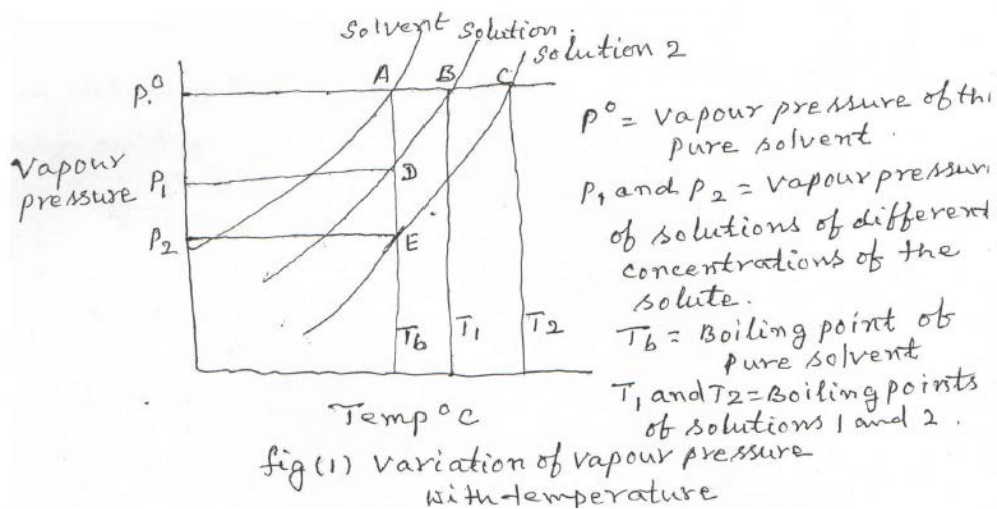 solvent solution
solution 2
A B C
P°
P° = vapour pressure of th
pure solvent.
Vapour
pressure
P₁
D
P₁ and P₂ = vapour pressur
of solutions of different
concentrations of the
solute.
P₂
E
T_b T₁ T₂
T_b = Boiling point of
pure solvent
T₁ and T2 = Boiling points
of solutions 1 and 2.
Temp °C
fig (1) Variation of vapour pressure
with temperature